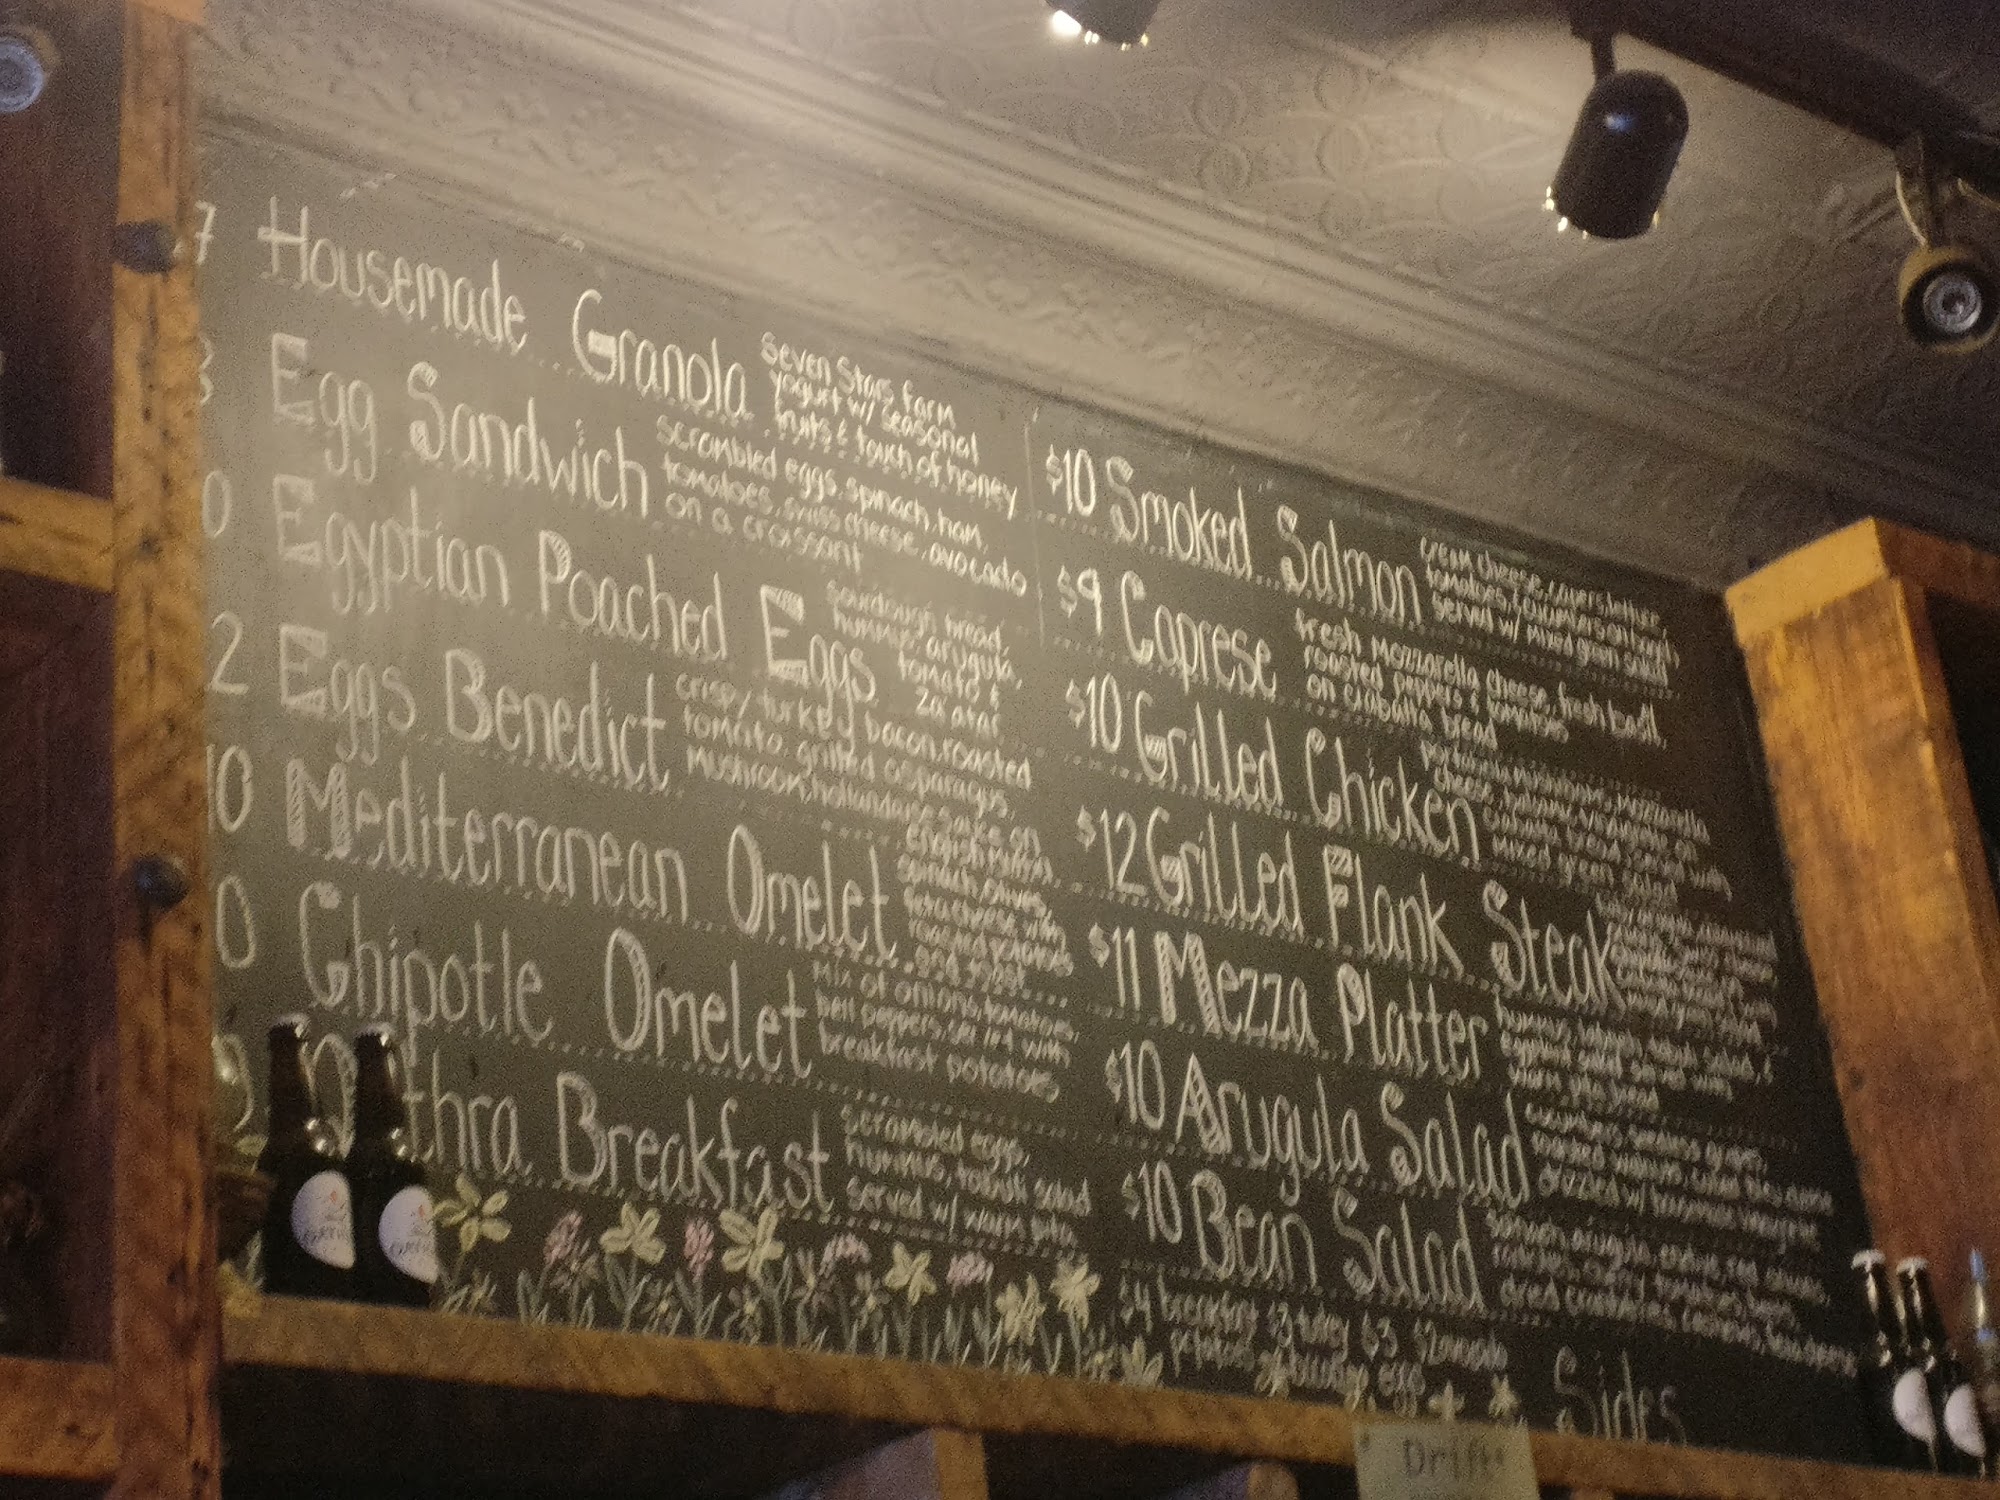 7 Housemade Granola
Seven Stars Farm
yogurt w/ seasonal
fruits & touch of honey
Egg Sandwich
scrambled eggs, spinach, ham,
tomatoes, swiss cheese, avocado
on a croissant
0 Egyptian Poached Eggs
sourdough bread,
hummus, arugula,
tomato &
Za'atar
2 Eggs Benedict
crispy turkey bacon, roasted
tomato, grilled asparagus,
mushroom, hollandaise sauce on
english muffin
10 Mediterranean Omelet
spinach, olives,
feta cheese with
roasted potatoes
and toast
0 Chipotle Omelet
Mix of onions, tomatoes,
bell peppers, served with
breakfast potatoes
thra Breakfast
scrambled eggs,
hummus, tabouli salad
served w/ warm pita
$10 Smoked Salmon
cream cheese, capers, lettuce,
tomatoes, & cucumbers on
served w/ mixed green salad
$9 Caprese
fresh mozzarella cheese, fresh basil,
roasted peppers & tomatoes
on ciabatta bread
$10 Grilled Chicken
portobello mushrooms, mozzarella
cheese, balsamic vinaigrette on
ciabatta bread served with
mixed green salad
$12 Grilled Flank Steak
mixed green salad
$11 Mezza Platter
hummus, labneh, salad, &
eggplant salad served with
warm pita bread
$10 Arugula Salad
cucumbers, seedless grapes,
roasted walnuts,
drizzled w/ vinaigrette
$10 Bean Salad
spinach, arugula, endive, red onions,
cherry tomatoes,
dried cranberries, cashews,
$4 breakfast $3 turkey $3 $2 avocado
potatoes egg
Sides
Drift